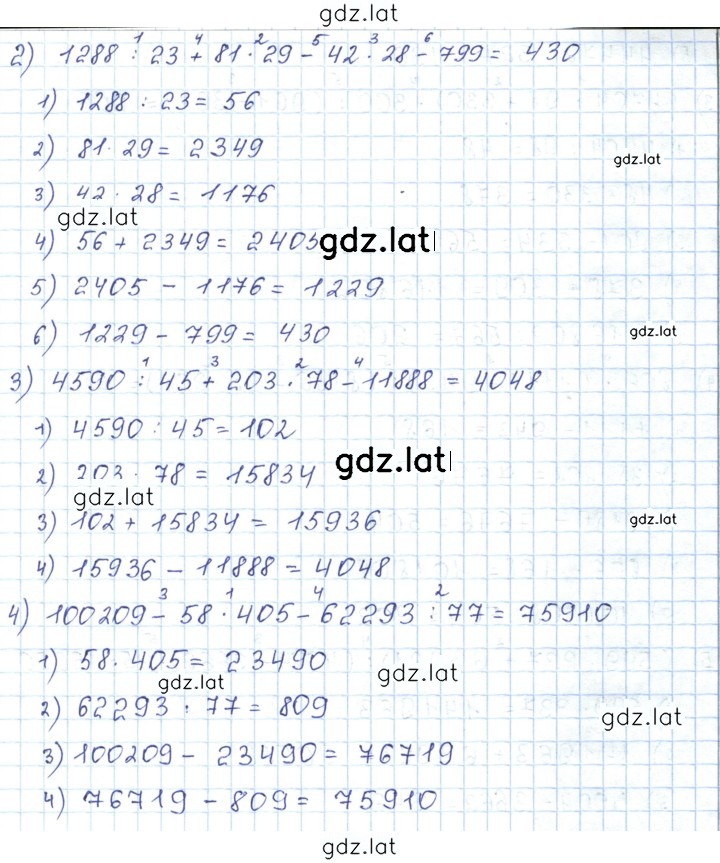 gdz.lat
2) 1288 : 23 + 81 · 29 - 42 · 28 - 799 = 430
1) 1288 : 23 = 56
2) 81 · 29 = 2349
gdz.lat
3) 42 · 28 = 1176
gdz.lat
4) 56 + 2349 = 2405
gdz.lat
5) 2405 - 1176 = 1229
6) 1229 - 799 = 430
gdz.lat
3) 4590 : 45 + 203 · 78 - 11888 = 4048
1) 4590 : 45 = 102
2) 203 · 78 = 15834
gdz.lat
gdz.lat
3) 102 + 15834 = 15936
gdz.lat
4) 15936 - 11888 = 4048
4) 100209 - 58 · 405 - 62293 : 77 = 75910
1) 58 · 405 = 23490
gdz.lat
gdz.lat
2) 62293 : 77 = 809
gdz.lat
3) 100209 - 23490 = 76719
4) 76719 - 809 = 75910
gdz.lat